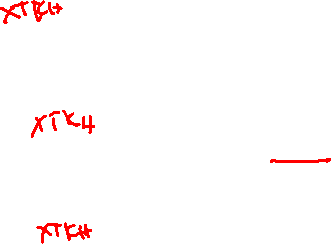 XTKH
XTKH
XTKH